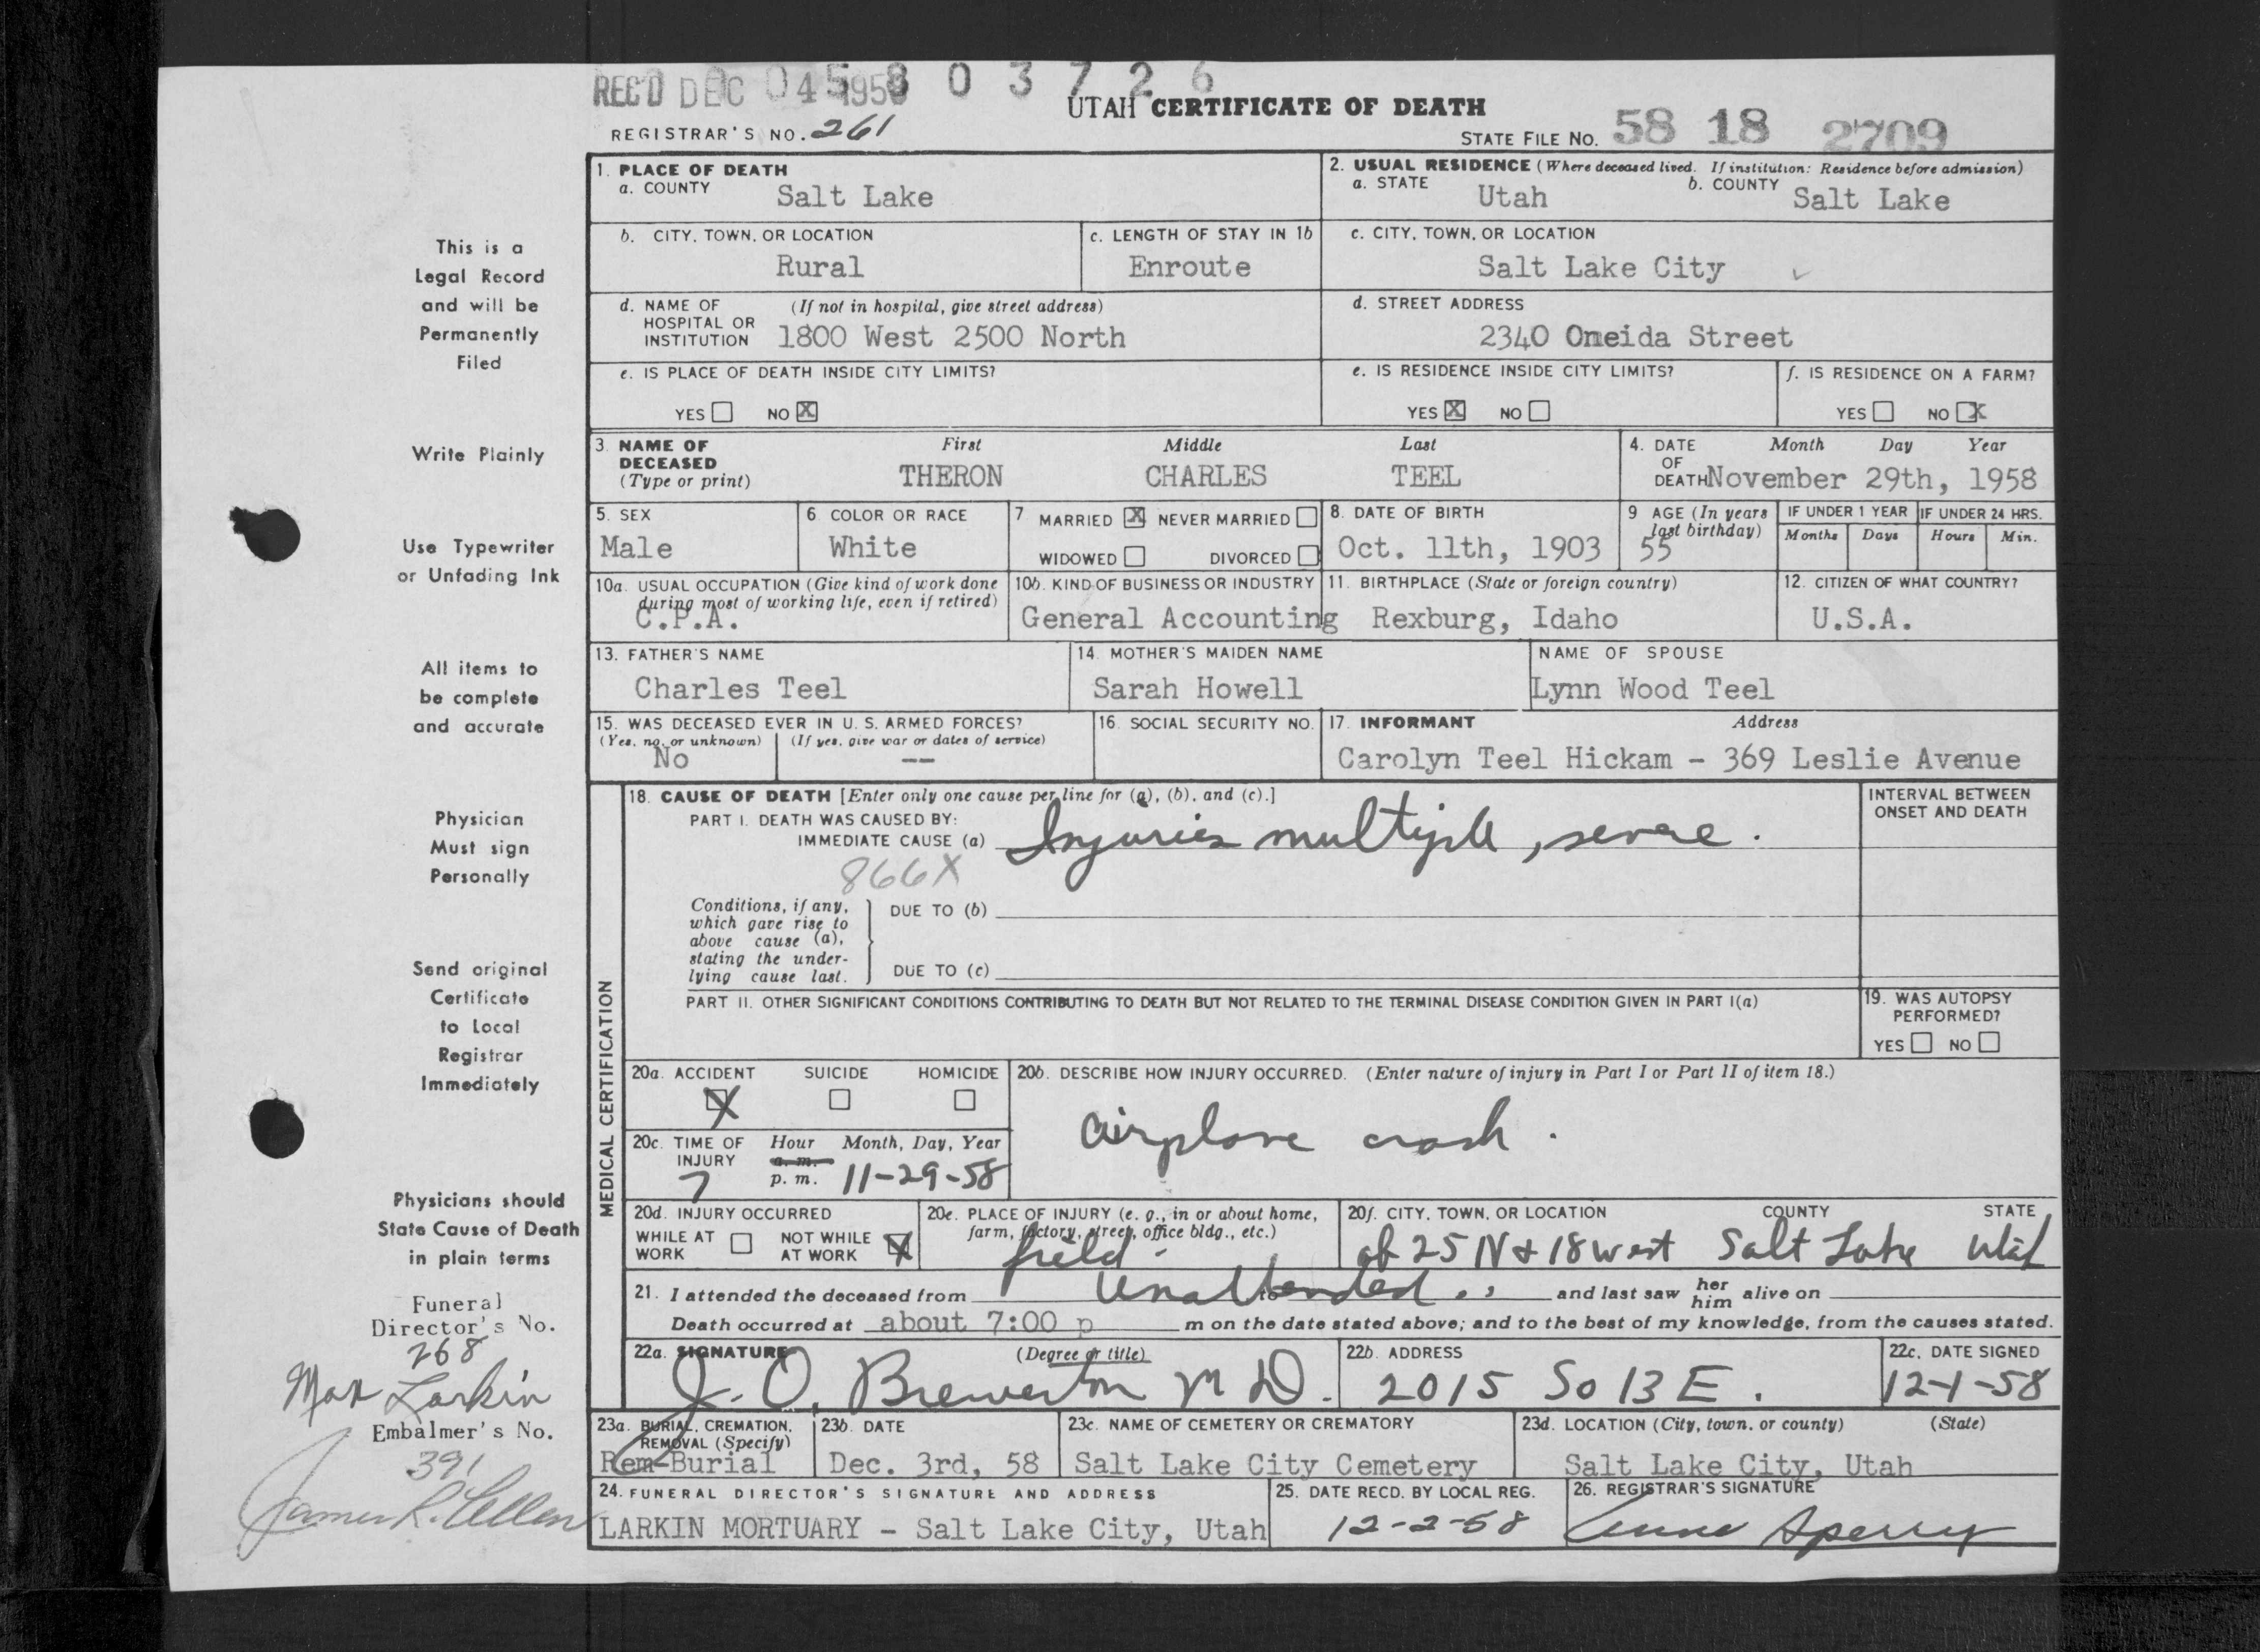 REC'D DEC 04 1958 5 8 0 3 7 2 6
UTAH CERTIFICATE OF DEATH
REGISTRAR'S NO. 261
STATE FILE NO. 58 18 2709
1. PLACE OF DEATH
a. COUNTY Salt Lake
2. USUAL RESIDENCE (Where deceased lived. If institution: Residence before admission)
a. STATE Utah b. COUNTY Salt Lake
b. CITY, TOWN, OR LOCATION Rural
c. LENGTH OF STAY IN 1b Enroute
c. CITY, TOWN, OR LOCATION Salt Lake City
d. NAME OF HOSPITAL OR INSTITUTION (If not in hospital, give street address)
1800 West 2500 North
d. STREET ADDRESS
2340 Oneida Street
e. IS PLACE OF DEATH INSIDE CITY LIMITS?
YES NO X
e. IS RESIDENCE INSIDE CITY LIMITS?
YES X NO
f. IS RESIDENCE ON A FARM?
YES NO X
3. NAME OF DECEASED (Type or print)
First Middle Last
THERON CHARLES TEEL
4. DATE OF DEATH Month Day Year
November 29th, 1958
5. SEX Male
6 COLOR OR RACE White
7 MARRIED X NEVER MARRIED
WIDOWED DIVORCED
8. DATE OF BIRTH Oct. 11th, 1903
9 AGE (In years last birthday) 55
IF UNDER 1 YEAR Months Days
IF UNDER 24 HRS. Hours Min.
10a. USUAL OCCUPATION (Give kind of work done during most of working life, even if retired)
C.P.A.
10b. KIND OF BUSINESS OR INDUSTRY
General Accounting
11. BIRTHPLACE (State or foreign country)
Rexburg, Idaho
12. CITIZEN OF WHAT COUNTRY?
U.S.A.
13. FATHER'S NAME
Charles Teel
14. MOTHER'S MAIDEN NAME
Sarah Howell
NAME OF SPOUSE
Lynn Wood Teel
15. WAS DECEASED EVER IN U. S. ARMED FORCES?
(Yes, no, or unknown) (If yes, give war or dates of service)
No --
16. SOCIAL SECURITY NO.
17. INFORMANT Address
Carolyn Teel Hickam - 369 Leslie Avenue
MEDICAL CERTIFICATION
18. CAUSE OF DEATH [Enter only one cause per line for (a), (b), and (c).]
INTERVAL BETWEEN ONSET AND DEATH
PART I. DEATH WAS CAUSED BY:
IMMEDIATE CAUSE (a) Injuries multiple, severe.
866X
Conditions, if any, which gave rise to above cause (a), stating the underlying cause last.
DUE TO (b)
DUE TO (c)
PART II. OTHER SIGNIFICANT CONDITIONS CONTRIBUTING TO DEATH BUT NOT RELATED TO THE TERMINAL DISEASE CONDITION GIVEN IN PART I(a)
19. WAS AUTOPSY PERFORMED?
YES NO
20a. ACCIDENT X SUICIDE HOMICIDE
20b. DESCRIBE HOW INJURY OCCURRED. (Enter nature of injury in Part I or Part II of item 18.)
airplane crash.
20c. TIME OF INJURY Hour Month, Day, Year
7 a.m. p.m. 11-29-58
20d. INJURY OCCURRED
WHILE AT WORK NOT WHILE AT WORK X
20e. PLACE OF INJURY (e. g., in or about home, farm, factory, street, office bldg., etc.)
field.
20f. CITY, TOWN, OR LOCATION COUNTY STATE
at 25 N & 18 West Salt Lake Utah
21. I attended the deceased from Unattended to and last saw her him alive on
Death occurred at about 7:00 p m on the date stated above; and to the best of my knowledge, from the causes stated.
22a. SIGNATURE (Degree or title)
J. O. Brewerton MD.
22b. ADDRESS
2015 So 13 E.
22c. DATE SIGNED
12-1-58
23a. BURIAL, CREMATION, REMOVAL (Specify)
Rem-Burial
23b. DATE
Dec. 3rd, 58
23c. NAME OF CEMETERY OR CREMATORY
Salt Lake City Cemetery
23d. LOCATION (City, town, or county) (State)
Salt Lake City, Utah
24. FUNERAL DIRECTOR'S SIGNATURE AND ADDRESS
LARKIN MORTUARY - Salt Lake City, Utah
25. DATE RECD. BY LOCAL REG.
12-2-58
26. REGISTRAR'S SIGNATURE
Anne Sperry
This is a
Legal Record
and will be
Permanently
Filed
Write Plainly
Use Typewriter
or Unfading Ink
All items to
be complete
and accurate
Physician
Must sign
Personally
Send original
Certificate
to Local
Registrar
Immediately
Physicians should
State Cause of Death
in plain terms
Funeral
Director's No.
268
Max Larkin
Embalmer's No.
391
James R.